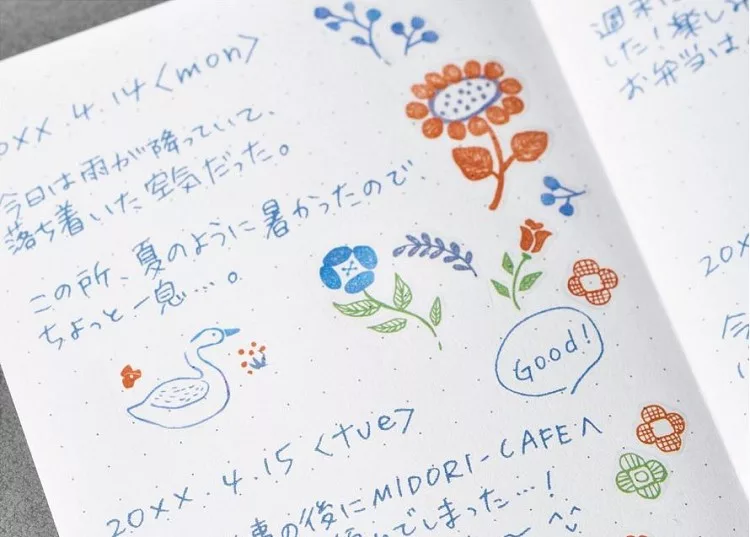 20XX.4.14<mon>
今日は雨が降っていて、
落ち着いた空気だった。
この所、夏のように暑かったので、
ちょっと一息…。
Good!
20XX.4.15<tue>
の後にMIDORI-CAFEへ
でしまった…!
週末に
した!楽し
お弁当は
20X